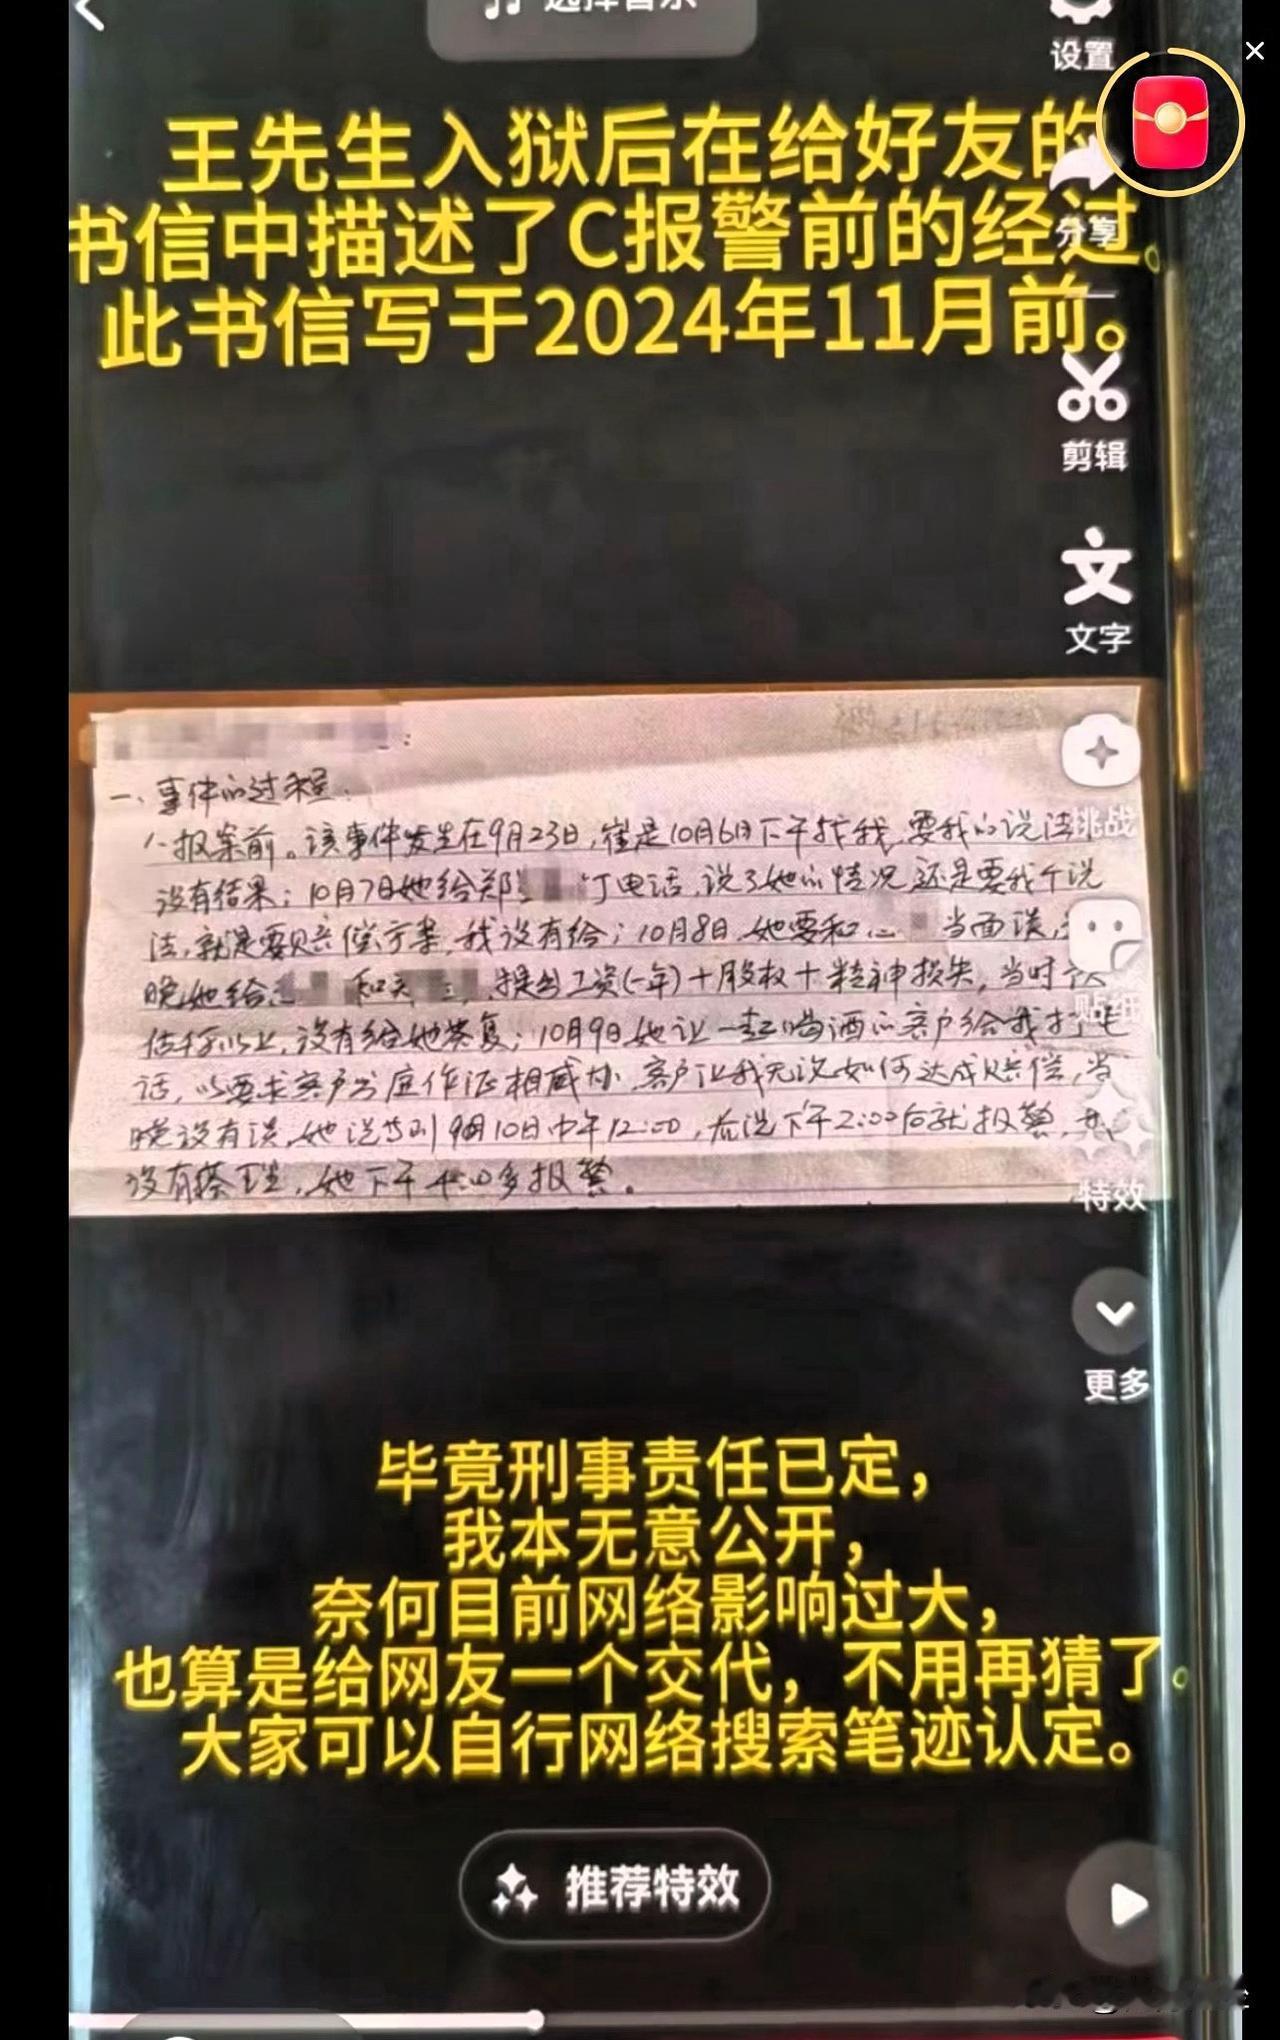 选择音乐
设置
王先生入狱后在给好友的
分享
书信中描述了C报警前的经过。
此书信写于2024年11月前。
剪辑
文
文字
一、事件的过程:
1.报案前。该事件发生在9月23日,崔是10月6日下午找我,要我的说法
挑战
没有结果;10月7日她给郑 打电话,说了她的情况,还是要我个说
法,就是要赔偿方案,我没有给;10月8日,她要和 当面谈,
晚她给 和 提出工资(一年)+股权+精神损失,当时
贴纸
估千万以上,没有给她答复;10月9日她让一起喝酒的客户给我打电
话,以要求客户出庭作证相威胁,客户让我无论如何达成赔偿,当
晚没有谈,她说等到9月10日中午12:00,后说下午2:00后就报警,
没有搭理,她下午4:00多报警。
特效
更多
毕竟刑事责任已定，
我本无意公开，
奈何目前网络影响过大，
也算是给网友一个交代，不用再猜了。
大家可以自行网络搜索笔迹认定。
推荐特效